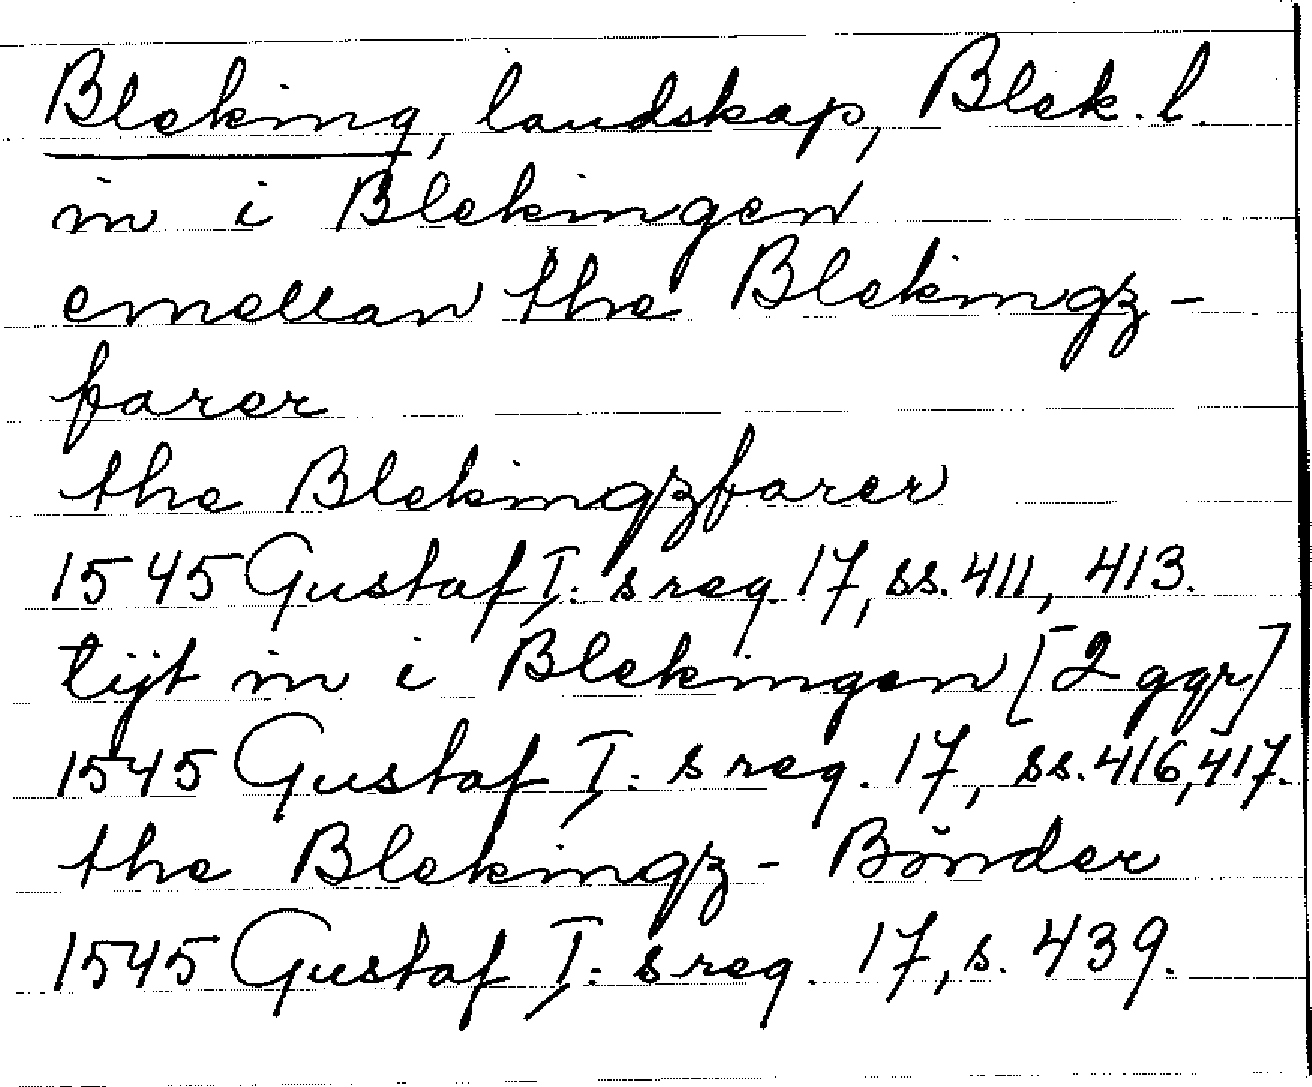 Bleking, landskap, Blek. l.
in i Blekingen
emellan the Blekingz-
farer
the Blekingzfarer
1545 Gustaf I: s reg. 17, ss. 411, 413.
tijt in i Blekingen [2 ggr]
1545 Gustaf I: s reg. 17, ss. 416, 417.
the Blekingz- Bönder
1545 Gustaf I: s reg. 17, s. 439.